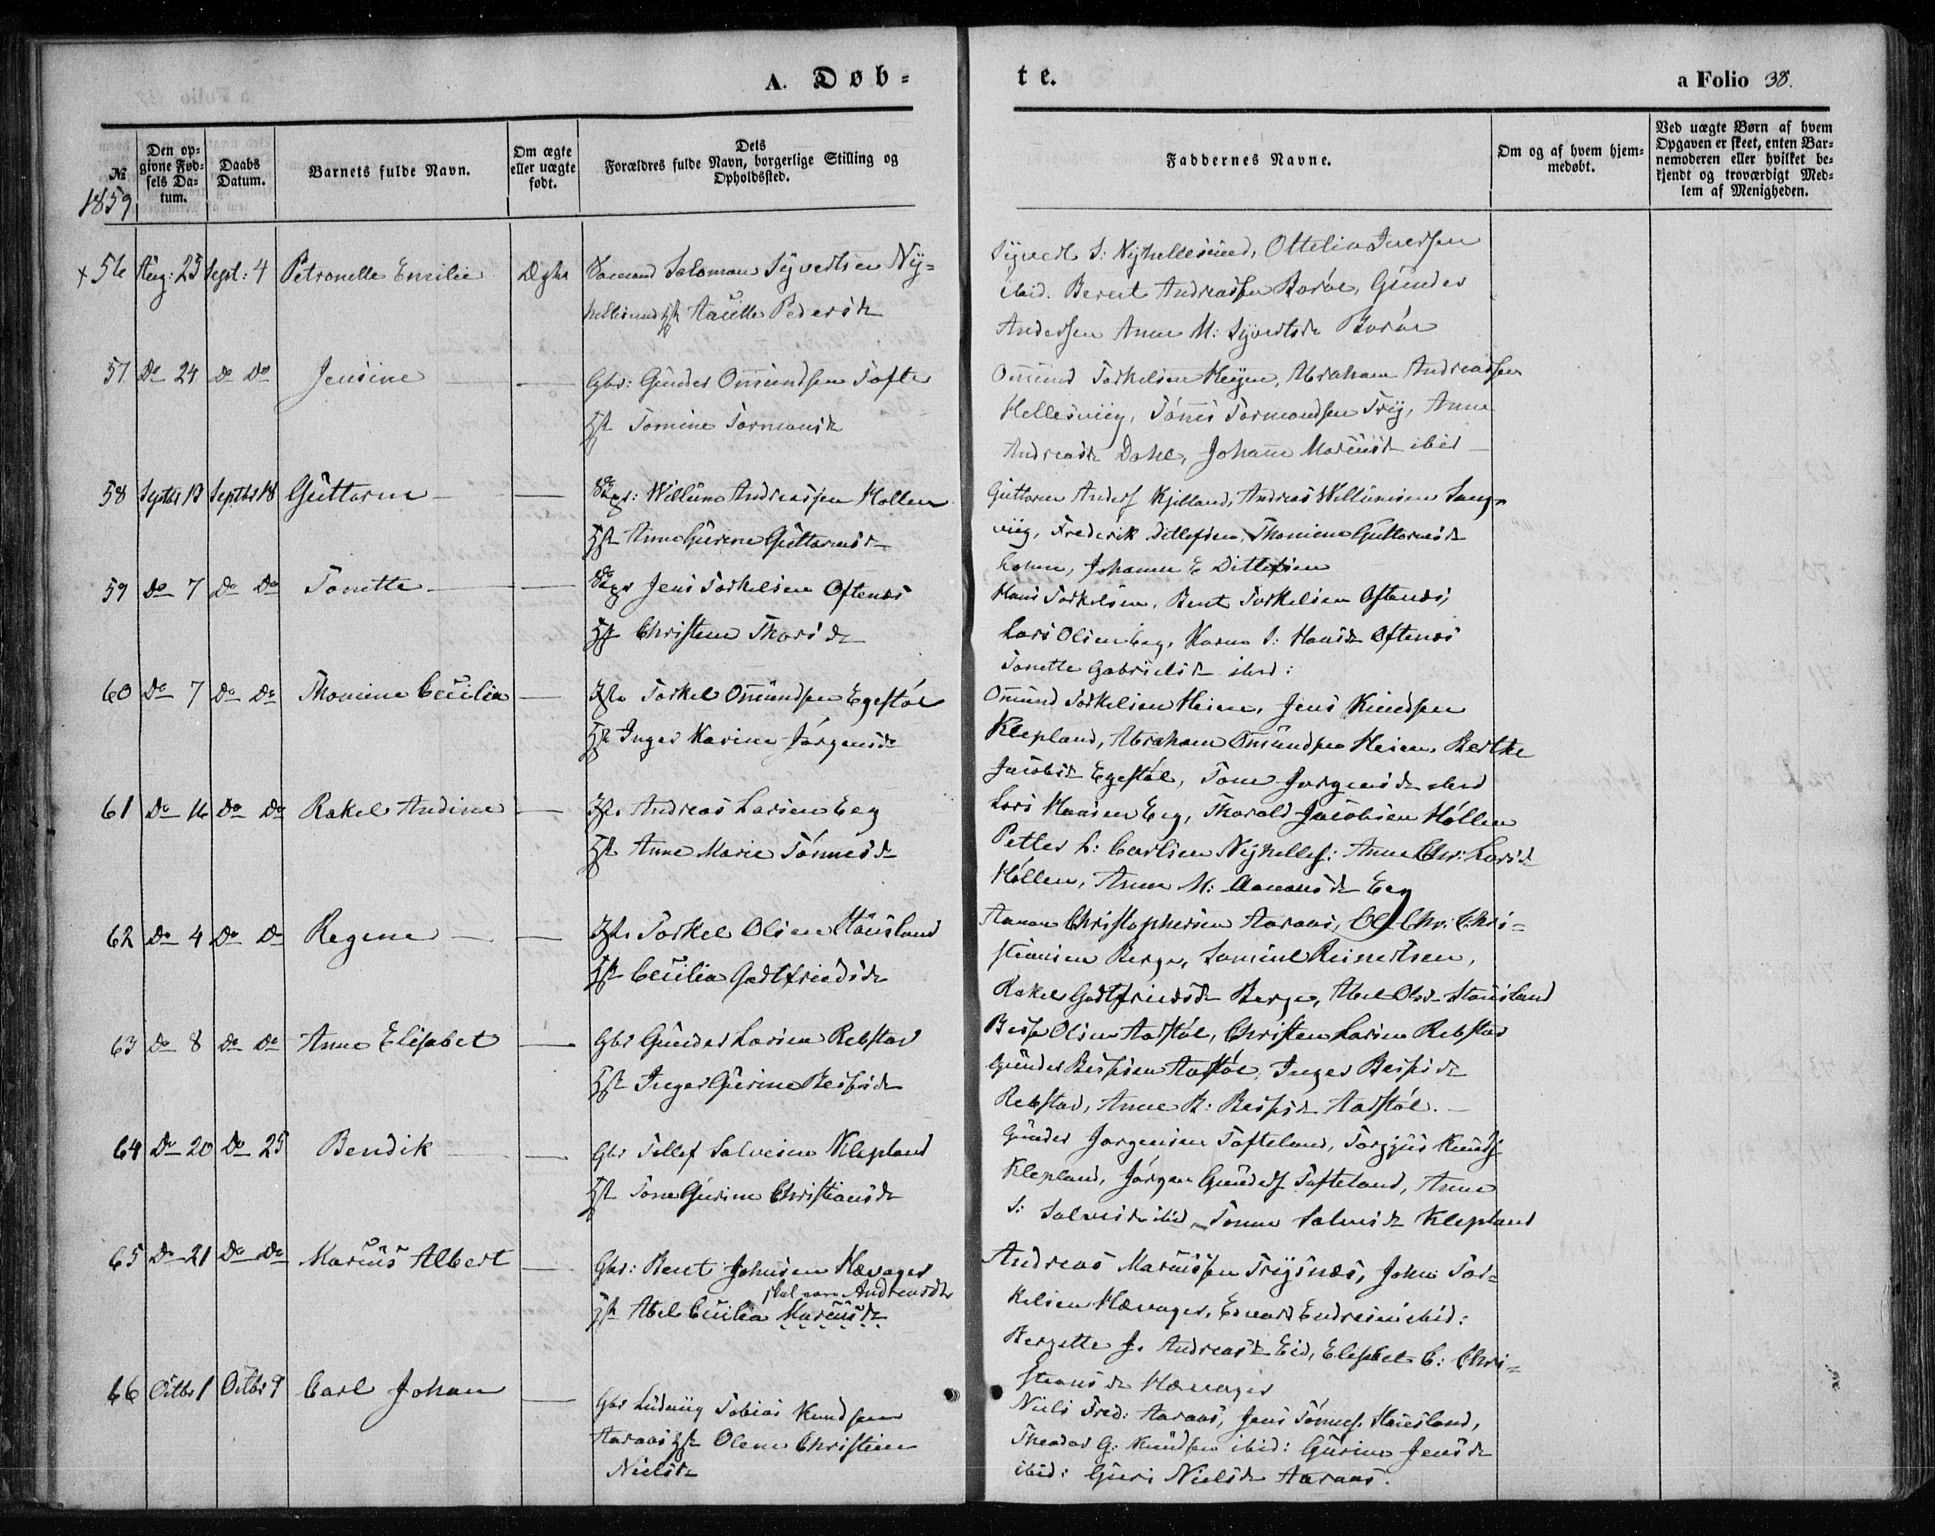 A. Døb-
te.
a Folio 38.
№
1859
Den op-
givne Fød-
sels Da-
tum.
Daabs
Datum.
Barnets fulde Navn.
Om ægte
eller uægte
født.
Dets
Forældres fulde Navn, borgerlige Stilling og
Opholdssted.
Faddernes Navne.
Om og af hvem hjem-
medøbt.
Ved uægte Børn af hvem
Opgaven er skeet, enten Bar-
nemoderen eller hvilket be-
kjendt og troværdigt Med-
lem af Menigheden.
+56 Aug: 23 Sept: 4 Petronelle Emilie Ægte Sømand Salomon Syvertsen Ny-
hellesund Hst Taulle Pedersd
Syvert S: Nyhellesund, Ottelia Iversen
ibid. Berent Andreassen Borøe, Gunder
Andersen Anne M: Syvertsd Borøe
57 Do 24 Do Do Jensine — — Gbr: Gunder Omundsen Tofte
Hst Tomine Tormonsd
Omund Torkelsen Heyen, Abraham Andreassen
Hellesviig, Tønes Tormondsen Try, Anne
Andreasd Dahl, Johanne Mariusd ibid
58 Septbr 13 Septbr 18 Guttorm — — Willum Andreassen Hollen
Hst Anne Gurine Guttormsd
Guttorm Anders Kjelland, Andreas Willumsen Lang-
viig, Frederik Ditlefsen, Thomine Guttormsd
Johanne E Ditlefsen
59 Do 7 Do Do Tonette — — Jens Torkelsen Oftenes
Hst Christine Thorsd
Hans Torkelsen, Bent Torkelsen Oftenes,
Lars Olsen Eeg, Karen S: Hansd Oftenes
Tonette Gabrielsd ibid:
60 Do 7 Do Do Thomine Cecilia — Torkel Omundsen Egestøl
Hst Inger Karine Jørgensd
Omund Torkelsen Heien, Jens Knudsen
Klepland, Abraham Omundsen Heien, Berthe
Jacobsd Egestøl, Tone Jørgensd ibid
61 Do 16 Do Do Rakel Andine — Andreas Larsen Eeg
Hst Anne Marie Tønnesd
Lars Hansen Eeg, Tharald Jacobsen Høllen
Petter L: Carlsen Nyhelles: Anne Chr: Larsd
Høllen, Anne M: Aanonsd Eeg
62 Do 4 Do Do Regine — — Torkel Olsen Stausland
Hst Cecilia Godtfriedsd
Aanon Christophersen Aaraas, Ole Chr: Chri-
stiansen Berge, Samuel Reinertsen,
Rakel Godtfriedsd Berge, Abel Olsd Stausland
63 Do 8 Do Do Anne Elisabet — Gbr Gunder Larsen Rebstad
Hst Inger Gurine Bessesd
Besse Olsen Aastøl, Christen Larsen Rebstad
Gunder Bessesen Aastøl, Inger Bessesd
Rebstad, Anne B: Bessesd Aastøl. —
64 Do 20 Do 25 Bendik — — Gbr Tellef Salvesen Klepland
Hst Tone Gurine Christiansd
Gunder Jørgensen Tofteland, Torgjus Knuds
Klepland, Jørgen Gunders Tofteland, Anne
S: Salvesd ibid, Tonne Salvesd Klepland
65 Do 21 Do Do Marius Albert — Gbr: Bent Johnsen Hævager
skal være Andreasdtr
Hst Abel Cecilia Mariusd
Andreas Mariussen Trysnæs, John Tor-
kelsen Hævager, Edvard Endresen ibid:
Bergette J. Andreasd Eid, Elisabet C: Chri-
stiansd Hævager
66 Octbr 1 Octbr 9 Carl Johan — Gbr Ludvig Tobias Knudsen
Aaraas Hst Olene Christine
Nielsd
Niels Fred: Aaraas, Jens Tønnes. Stausland,
Theodor G: Knudsen ibid: Gurine Jensd
ibid: Guri Nielsd Aaraas.